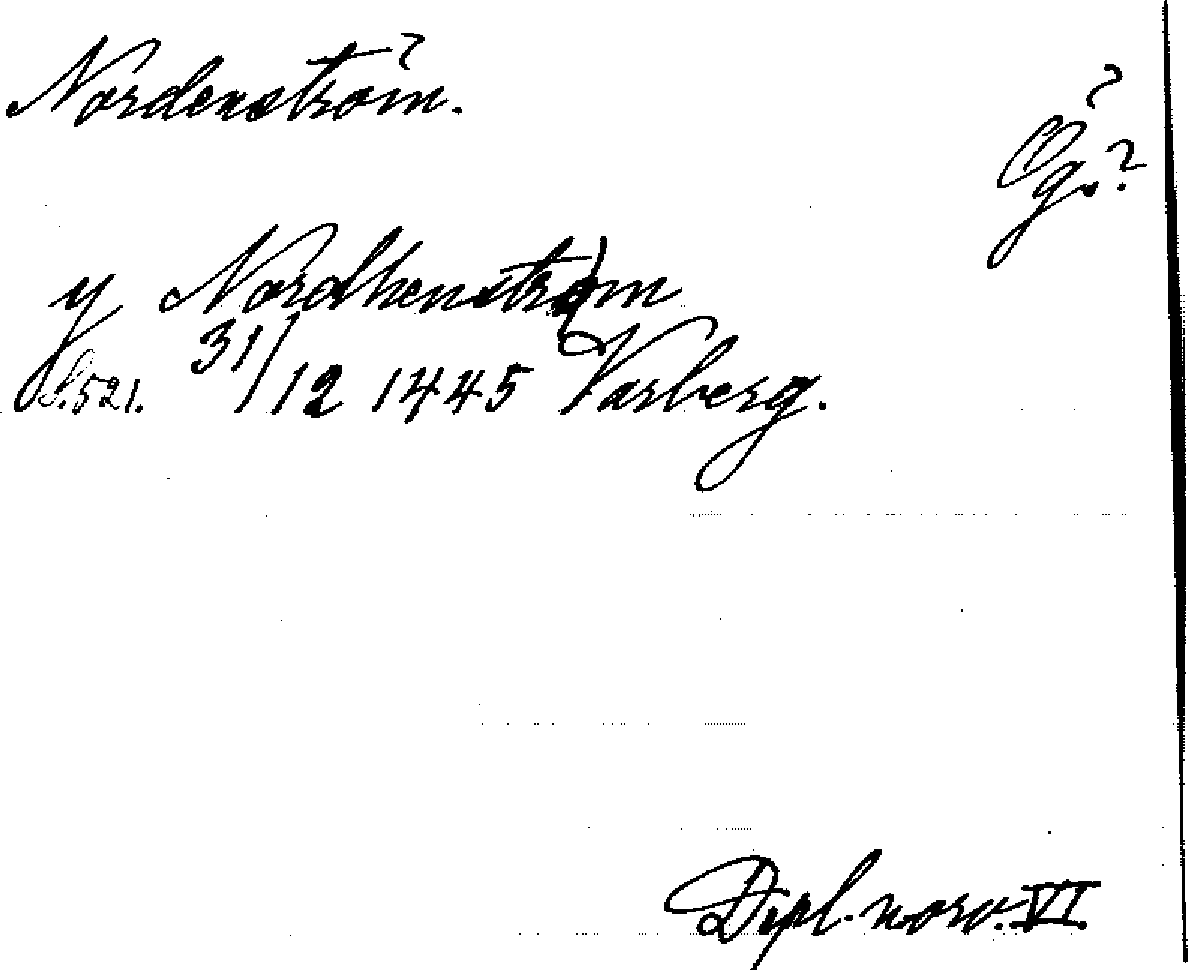 Nordenström.
Ög.?
y Nordhenstrøm
S. 521. 31/12 1445 Varberg.
Dipl. norv. VI.